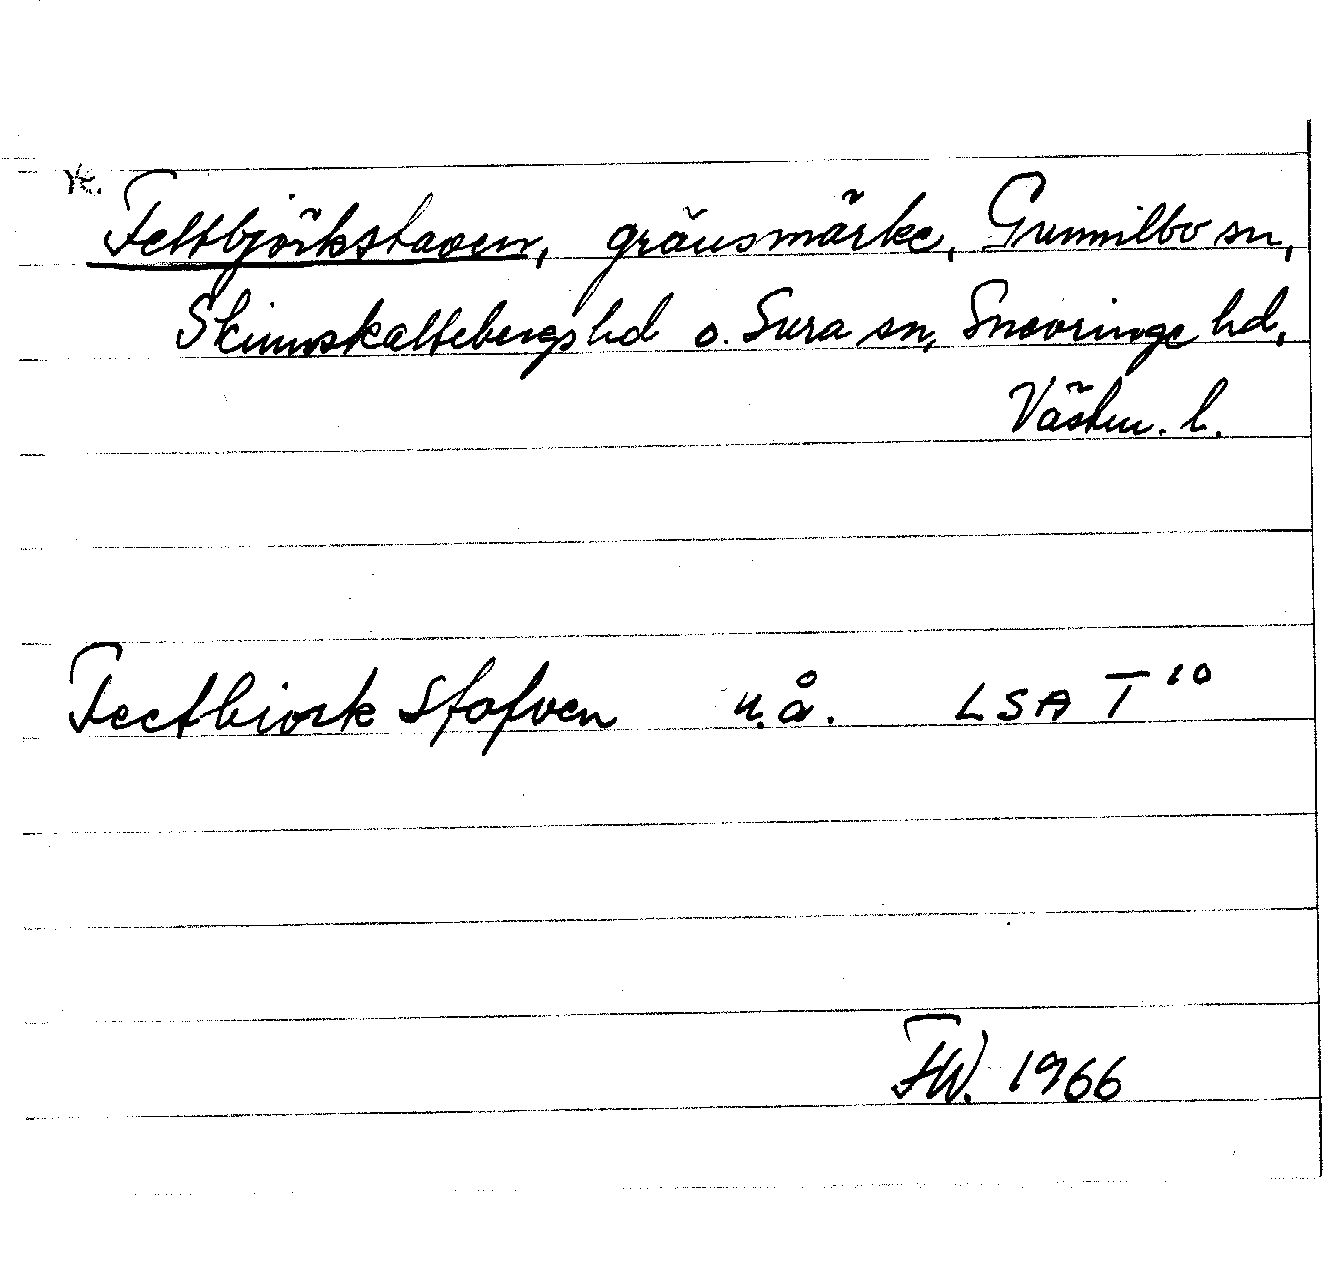 Feltbjörkstaven, gränsmärke, Gunnilbo sn,
Skinnskattebergs hd o. Sura sn, Snevringe hd,
Västm. l.
Feetbiork Stafven u.å. LSA T 10
FW. 1966